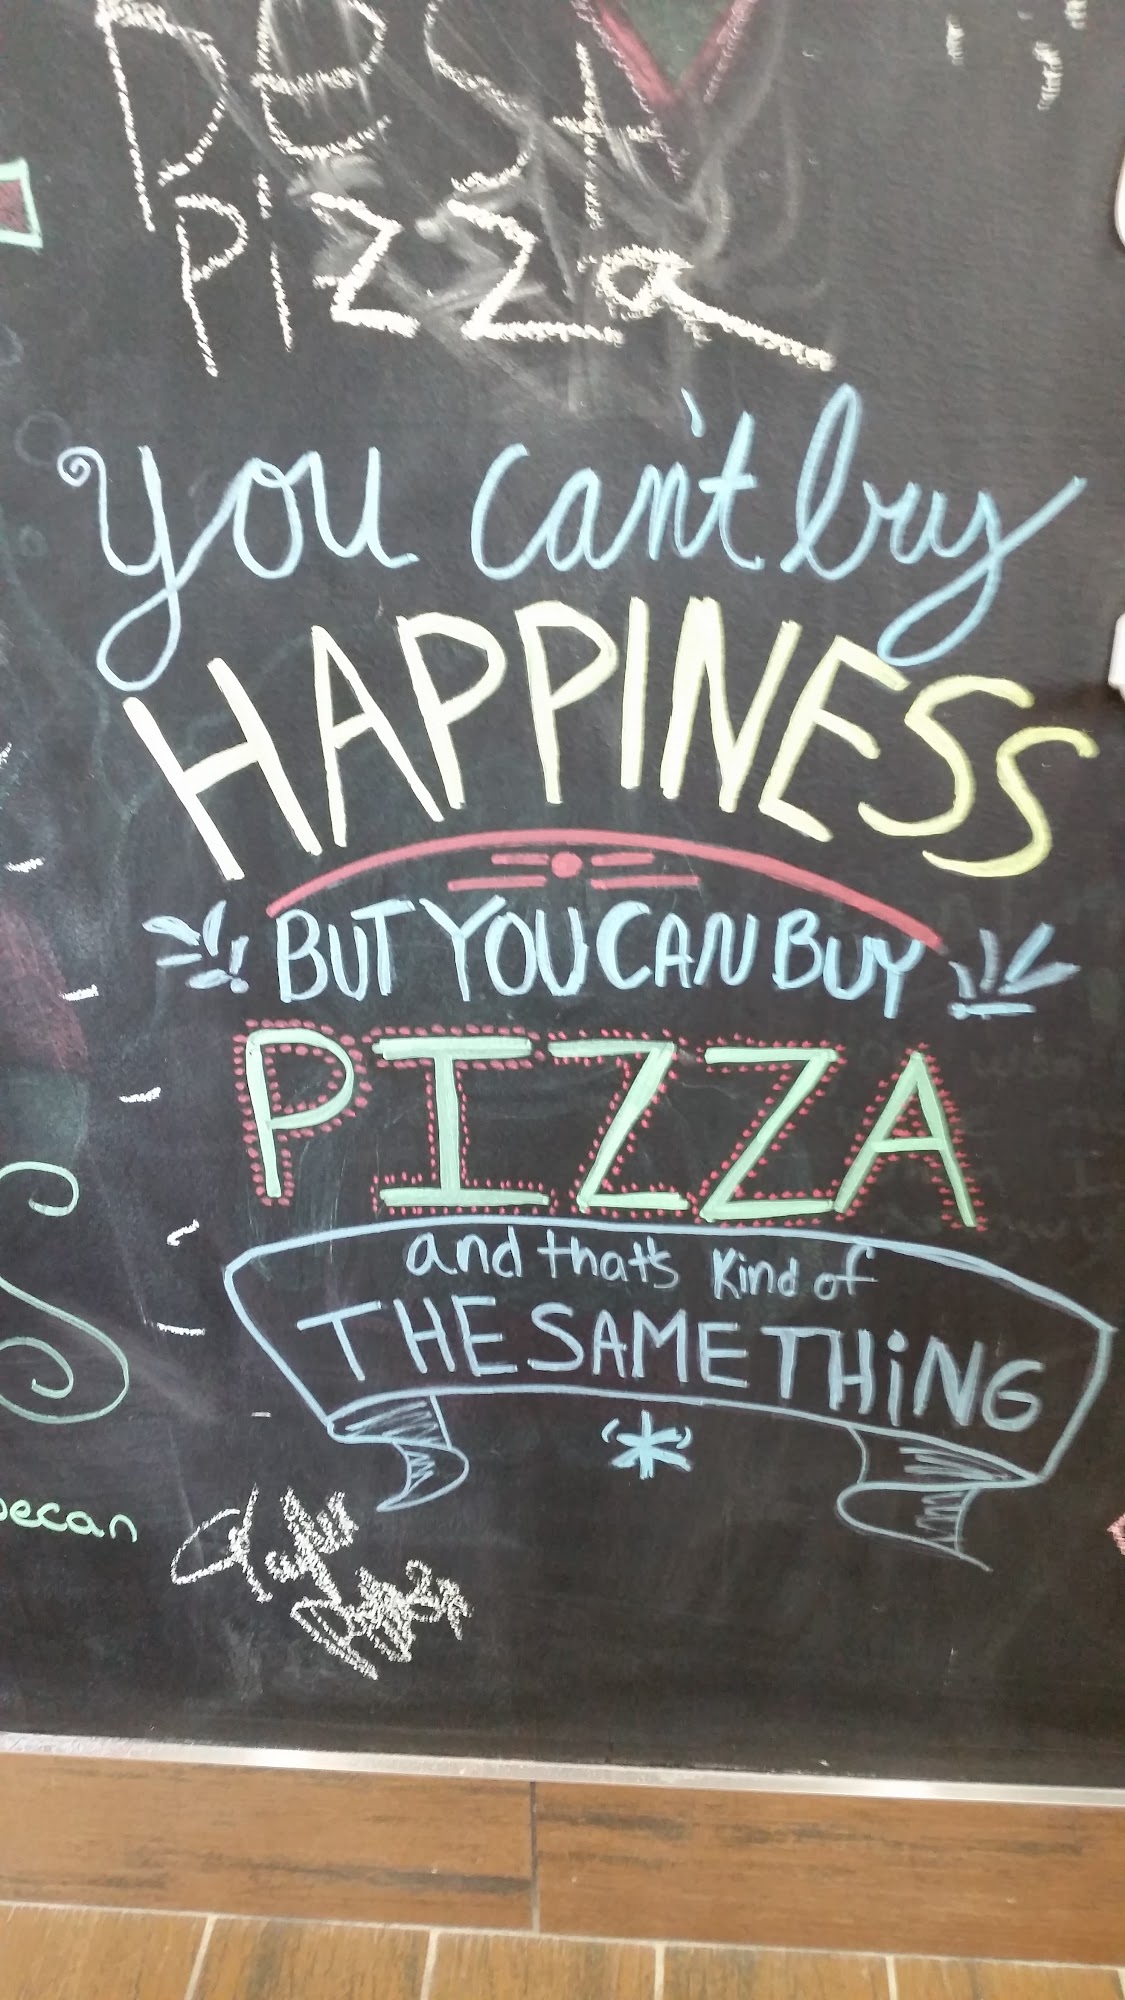 best
pizza
you can't buy
HAPPINESS
BUT YOU CAN BUY
PIZZA
and that's kind of
THE SAME THING
*
pecan